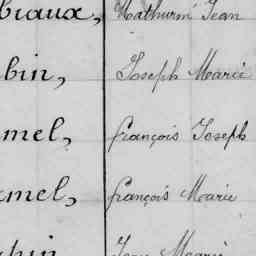 biaux, Mathurin Jean
bin, Joseph Marie
mel, françois Joseph
amel, françois Marie
bin Jean Marie